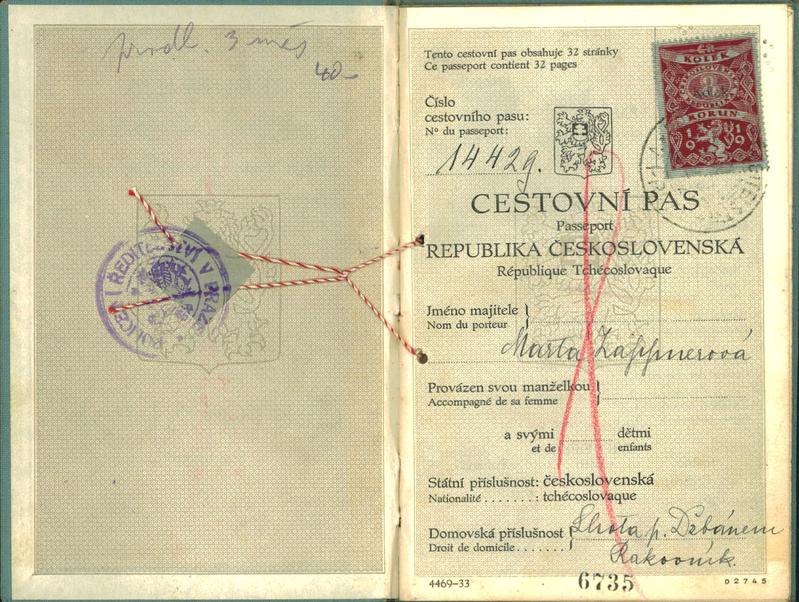 prodl. 3 měs
40-
POLICEJNÍ ŘEDITELSTVÍ V PRAZE
Tento cestovní pas obsahuje 32 stránky
Ce passeport contient 32 pages
Číslo
cestovního pasu:
Nº du passeport:
14429.
KOLEK
ČESKOSLOVENSKÁ
REPUBLIKA
KORUN
1919
CESTOVNÍ PAS
Passeport
REPUBLIKA ČESKOSLOVENSKÁ
République Tchécoslovaque
Jméno majitele
Nom du porteur
Marta Zappnerová
Provázen svou manželkou
Accompagné de sa femme
a svými dětmi
et de enfants
Státní příslušnost: československá
Nationalité . . . . . . . : tchécoslovaque
Domovská příslušnost
Lhota p. Džbánem
Droit de domicile . . . . . . :
Rakovník.
4469-33
6735
D2745